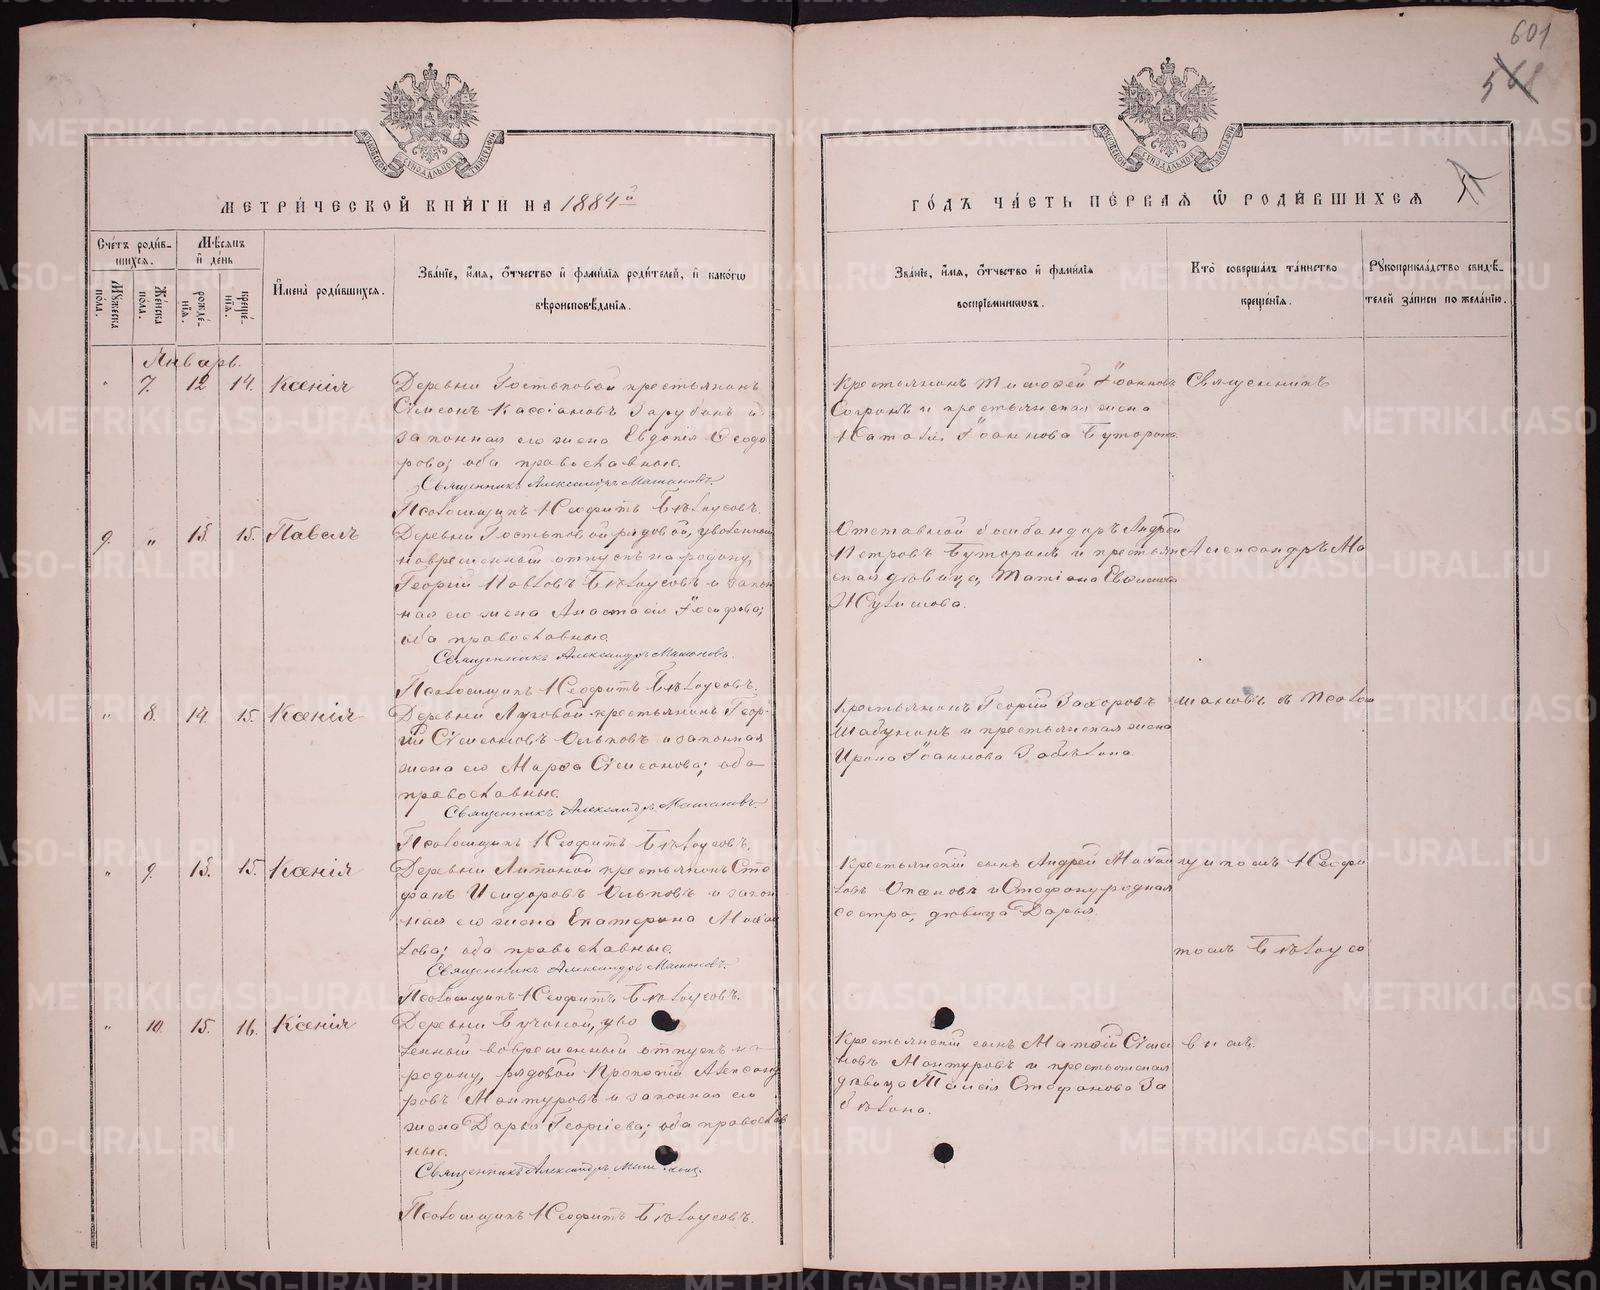 601
561
МЕТРИ́ЧЕСКОЙ КНИ́ГИ НА 1884й
ГО́ДЪ ЧА́СТЬ ПЕ́РВАЯ Ѡ РОДИ́ВШИХСЯ
Сче́тъ роди́в-
шихся.
Мѣ́сяцъ
и҆ де́нь
И҆мена̀ роди́вшихся.
Зва́нїе, и҆́мя, ѻ҆́тчество и҆ фами́лїя роди́телей, и҆ како́гѡ
вѣроисповѣ́данїя.
Му́жеска по́ла.
Же́нска по́ла.
рожде́нїя.
креще́нїя.
Зва́нїе, и҆́мя, ѻ҆́тчество и҆ фами́лїя
воспрїе́мникѡвъ.
Кто̀ соверша́лъ та́инство
креще́нїя.
Рукоприкла́дство свидѣ́-
телей за́писи по жела́нїю.
Январь.
" 7. 12 14. Ксенія
Деревни Гостьковой крестьянинъ
Сѵмеонъ Кассіановъ Зарубинъ и
законная его жена Евдокія Ѳеодо
рова; оба православные.
Священникъ Александръ
Псаломщикъ Неофитъ Бѣлоусовъ.
Крестьянинъ Тимоѳей Іоанновъ
и крестьянская жена
Наталія Іоаннова Буторина.
Священникъ
9. " 15. 15. Павелъ
Деревни Гостьковой рядовой, уволенный
во временный отпускъ на родину,
Георгій Павловъ Бѣлоусовъ и закон
ная его жена Анастасія Іосифова;
оба православные.
Священникъ Александръ
Псаломщикъ Неофитъ Бѣлоусовъ.
Отставной бомбандиръ Андрей
Петровъ Буторинъ и крестьян
ская дѣвица, Татіана
Александръ Ма
" 8. 14. 15. Ксенія
Деревни Луговой крестьянинъ Геор-
гій Сѵмеоновъ Ольковъ и законная
жена его Марѳа Сѵмеонова; оба
православные.
Священникъ Александръ
Псаломщикъ Неофитъ Бѣлоусовъ.
Крестьянинъ Георгій Захаровъ
Шабунинъ и крестьянская жена
Ирина Іоаннова Забѣлина.
съ Псалом
" 9. 15. 15. Ксенія
Деревни крестьянинъ Сте
фанъ Исидоровъ Ольковъ и закон
ная его жена Екатерина Михаи
лова; оба православные.
Священникъ Александръ
Псаломщикъ Неофитъ Бѣлоусовъ.
Крестьянскій сынъ Андрей Михаи
ловъ и Стефану родная
сестра, дѣвица Дарья.
щикомъ Неофи
томъ Бѣлоусо
" 10. 15. 16. Ксенія
Деревни уво
ленный во временный отпускъ на
родину, рядовой Прокопій Александ
ровъ Мантуровъ и законная его
жена Дарья Георгіева; оба православ
ные.
Священникъ Александръ
Псаломщикъ Неофитъ Бѣлоусовъ.
Крестьянскій сынъ Матѳій Сѵмео
новъ Мантуровъ и крестьянская
дѣвица Таисія Стефанова За
бѣлина.
вымъ.
METRIKI.GASO-URAL.RU